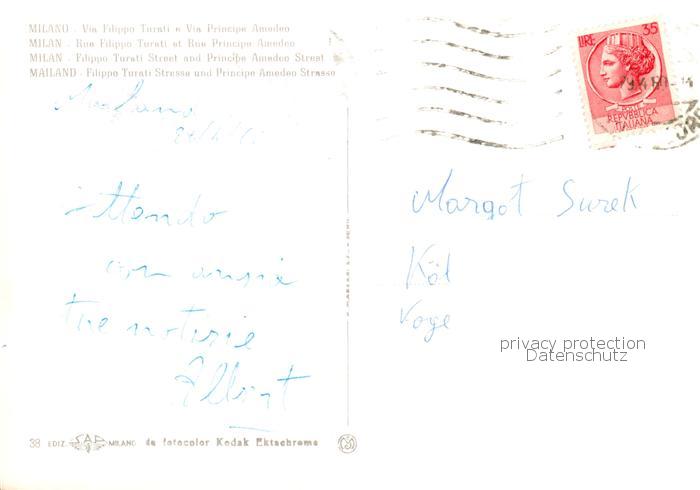 MILANO - Via Filippo Turati e Via Principe Amedeo
MILAN - Rue Filippo Turati et Rue Principe Amedeo
MILAN - Filippo Turati Street and Principe Amedeo Street
MAILAND - Filippo Turati Strasse und Principe Amedeo Strasse
LIRE 35
POSTE
REPVBBLICA
ITALIANA
Milano
Attendo
con ansia
tue notizie
Albert
Margot Surek
Köl
Voge
privacy protection
Datenschutz
38 EDIZ. SAF MILANO da fotocolor Kodak Ektachrome